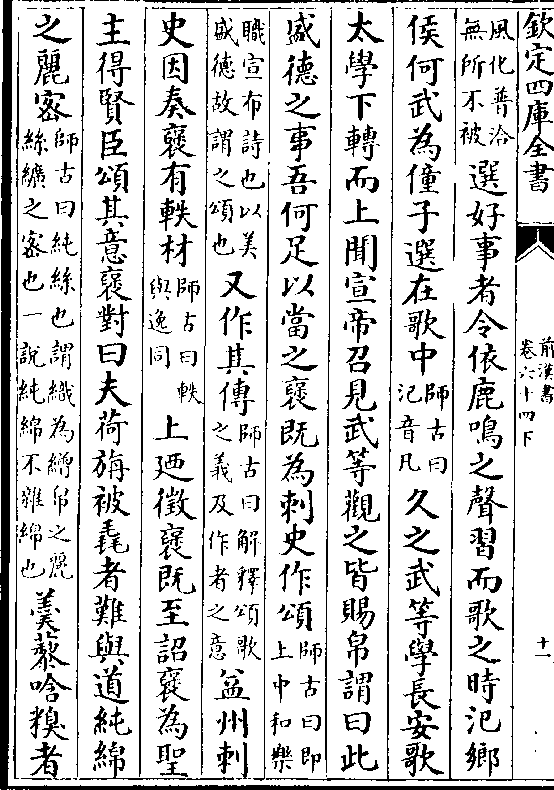 欽定四庫全書
前漢書
卷六十四下
十一
風化普洽
無所不被
選好事者令依鹿鳴之聲習而歌之時汜鄉
侯何武為僮子選在歌中
師古曰
汜音凡
久之武等學長安歌
太學下轉而上聞宣帝召見武等觀之皆賜帛謂曰此
盛德之事吾何足以當之褒既為刺史作頌
師古曰即
上中和樂
職宣布詩也以美
盛德故謂之頌也
又作其傳
師古曰解釋頌歌
之義及作者之意
益州刺
史因奏褒有軼材
師古曰軼
與逸同
上廼徵褒既至詔褒為聖
主得賢臣頌其意褒對曰夫荷旃被毳者難與道純綿
之麗密
師古曰純絲也謂織為繒帛之麗
絲纊之密也一說純綿不雜綿也
羹藜唅糗者